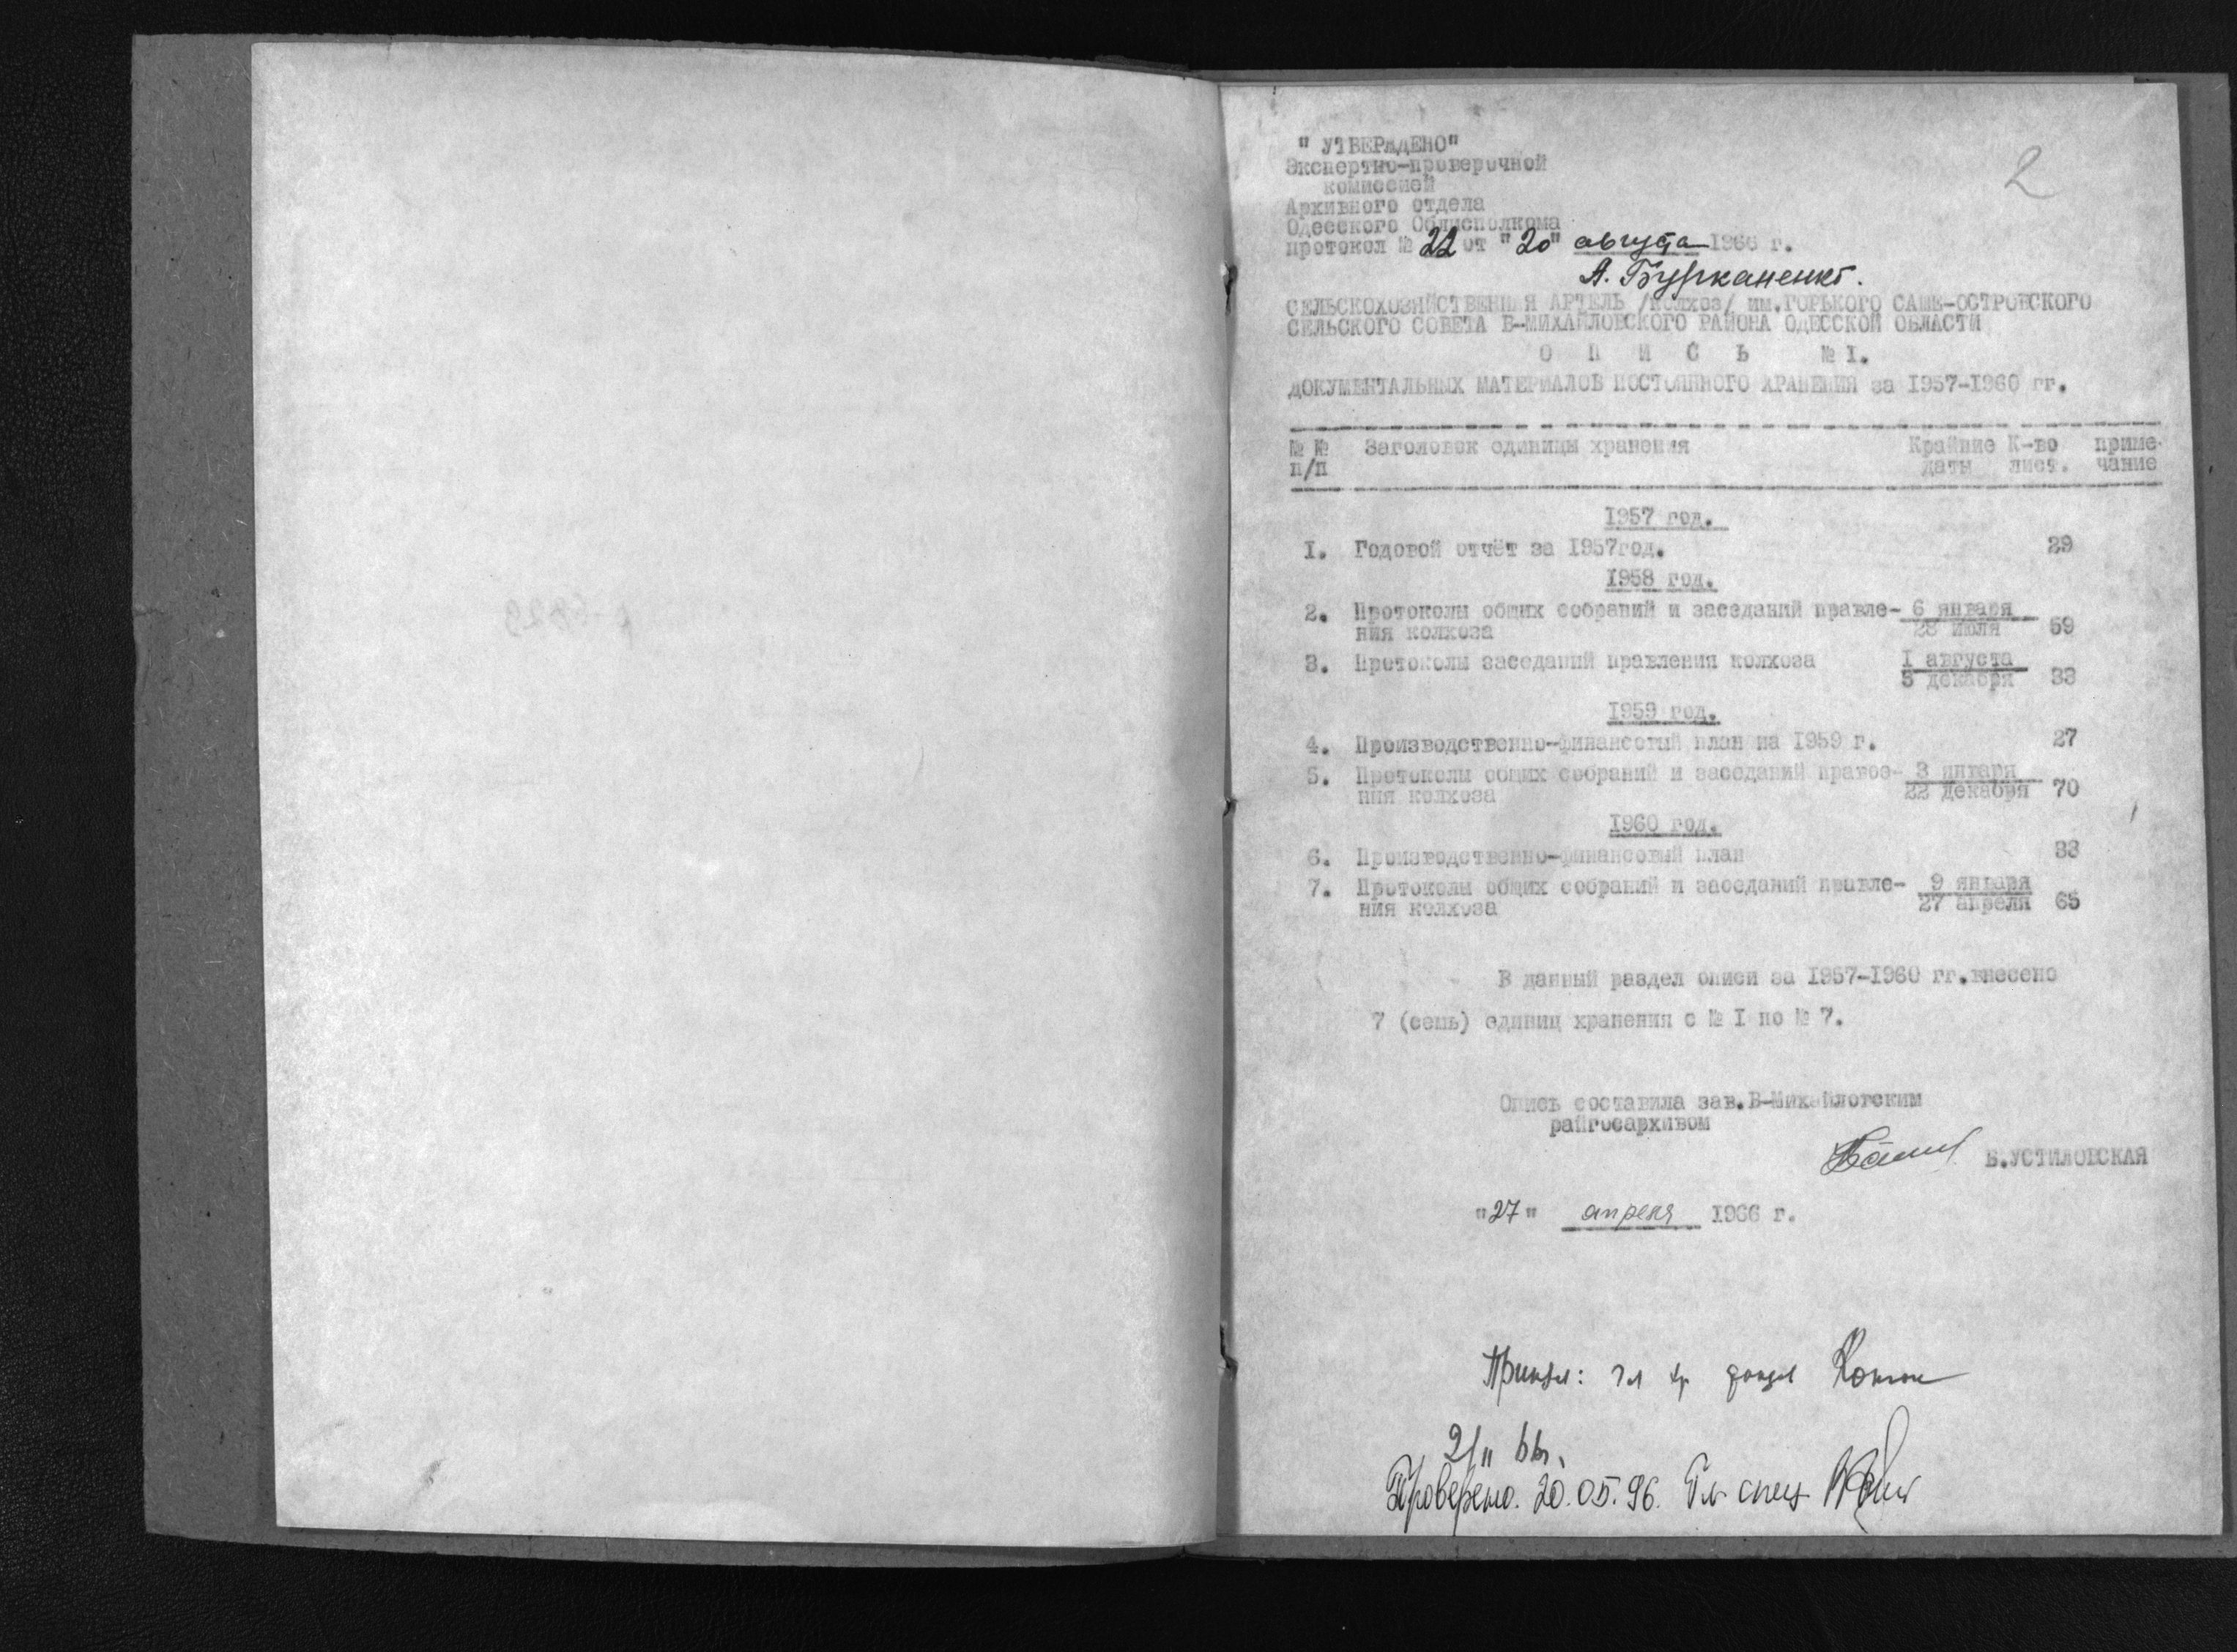 2
" УТВЕРЖДЕНО"
Экспертно-проверочной
комиссией
Архивного отдела
Одесского Облисполкома
протокол № 22 от "20" августа 1966 г.
А.
СЕЛЬСКОХОЗЯЙСТВЕННАЯ АРТЕЛЬ /колхоз/ им.ГОРЬКОГО САШЕ-ОСТРОВСКОГО
СЕЛЬСКОГО СОВЕТА В-МИХАЙЛОВСКОГО РАЙОНА ОДЕССКОЙ ОБЛАСТИ
О П И С Ь № I.
ДОКУМЕНТАЛЬНЫХ МАТЕРИАЛОВ ПОСТОЯННОГО ХРАНЕНИЯ за 1957-1960 гг.
№ № Заголовок единицы хранения Крайние К-во приме-
п/п даты лист. чание
1957 год.
I. Годовой отчёт за 1957год. 29
1958 год.
2. Протоколы общих собраний и заседаний правле- 6 января
ния колхоза 28 июля 59
3. Протоколы заседаний правления колхоза 1 августа
3 декабря 33
1959 год.
4. Производственно-финансовый план на 1959 г. 27
5. Протоколы общих собраний и заседаний правое- 3 января
ния колхоза 22 декабря 70
1960 год.
6. Производственно-финансовый план 33
7. Протоколы общих собраний и заседаний правле- 9 января
ния колхоза 27 апреля 65
В данный раздел описи за 1957-1960 гг.внесено
7 (семь) единиц хранения с № I по № 7.
Опись составила зав.В-Михайловским
райгосархивом
В.УСТИЛОВСКАЯ
"27" апреля 1966 г.
Проверено. 20.05.96. Гл спец